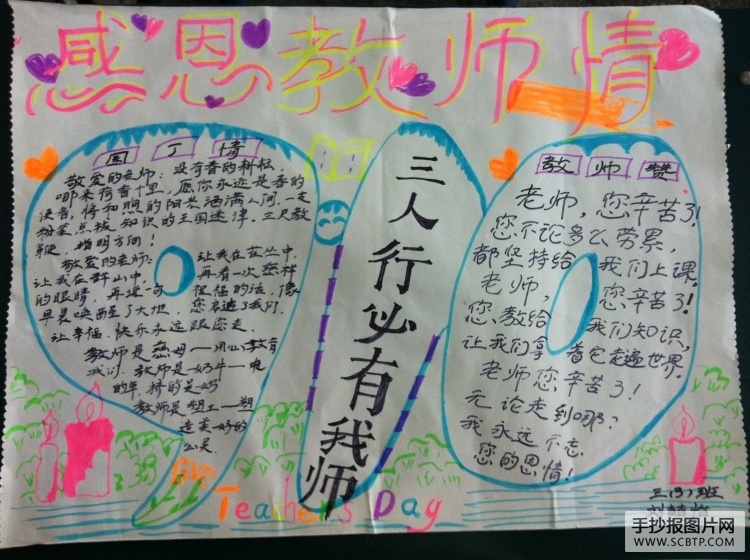 感恩教师情
园丁情
敬爱的老师：没有春的耕耘，
哪来荷香十里，愿你永远是春的
使者，将和煦的阳光洒满人间。一支
粉笔点拨知识的王国迷津，三尺教
鞭，指明方向！
敬爱的老师：让我在茫丛中，
让我在群山中，再看一次慈祥
的眼睛，再送一句祝福的话，像
早晨唤醒了大地，您启迪了我们，
让幸福、快乐永远跟您走。
教师是慈母——用心教育
我们。教师是奶牛——吃
的草，挤的是奶
教师是塑工——塑
造美好的
心灵。
三人行必有我师
教师赞
老师，您辛苦了！
您不论多么劳累，
都坚持给我们上课。
老师，您辛苦了！
您教给我们知识，
让我们拿着它走遍世界。
老师您辛苦了！
无论走到哪？
我永远不忘
您的恩情！
Teacher's Day
三(3)班
手抄报图片网
WWW.SCBTP.COM